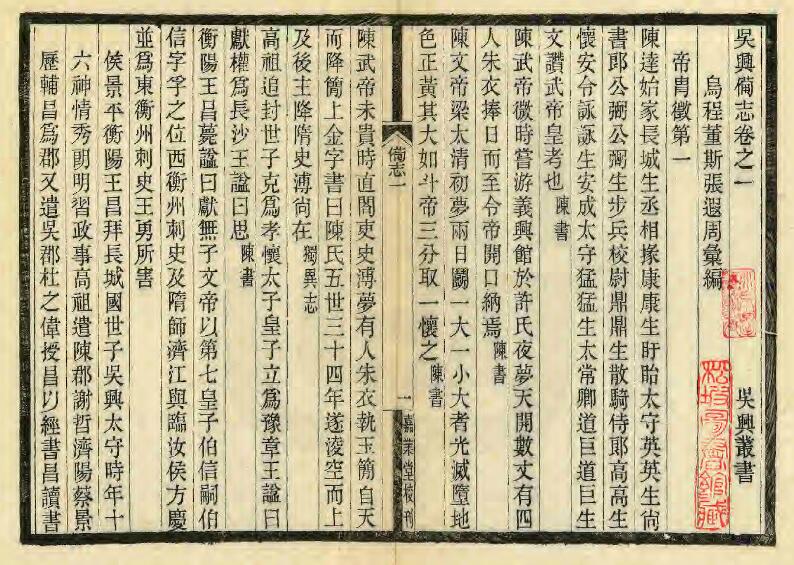 吳興備志卷之一　吳興叢書
烏程董斯張遐周彙編
帝胄徵第一
陳達始家長城生丞相掾康康生盱眙太守英英生尚
書郎公弼公弼生步兵校尉鼎鼎生散騎侍郎高高生
懷安令詠詠生安成太守猛猛生太常卿道巨道巨生
文讚武帝皇考也陳書
陳武帝微時嘗游義興館於許氏夜夢天開數丈有四
人朱衣捧日而至令帝開口納焉陳書
陳文帝梁太清初夢兩日鬬一大一小大者光滅墮地
色正黃其大如斗帝三分取一懷之陳書
備志一
一
嘉業堂校刊
陳武帝未貴時直閤吏史溥夢有人朱衣執玉簡自天
而降簡上金字書曰陳氏五世三十四年遂淩空而上
及後主降隋史溥尚在獨異志
高祖追封世子克爲孝懷太子皇子立爲豫章王諡曰
獻權爲長沙王諡曰思陳書
衡陽王昌薨諡曰獻無子文帝以第七皇子伯信嗣伯
信字孚之位西衡州刺史及隋師濟江與臨汝侯方慶
並爲東衡州刺史王勇所害
侯景平衡陽王昌拜長城國世子吳興太守時年十
六神情秀朗明習政事高祖遣陳郡謝哲濟陽蔡景
歷輔昌爲郡又遣吳郡杜之偉授昌以經書昌讀書